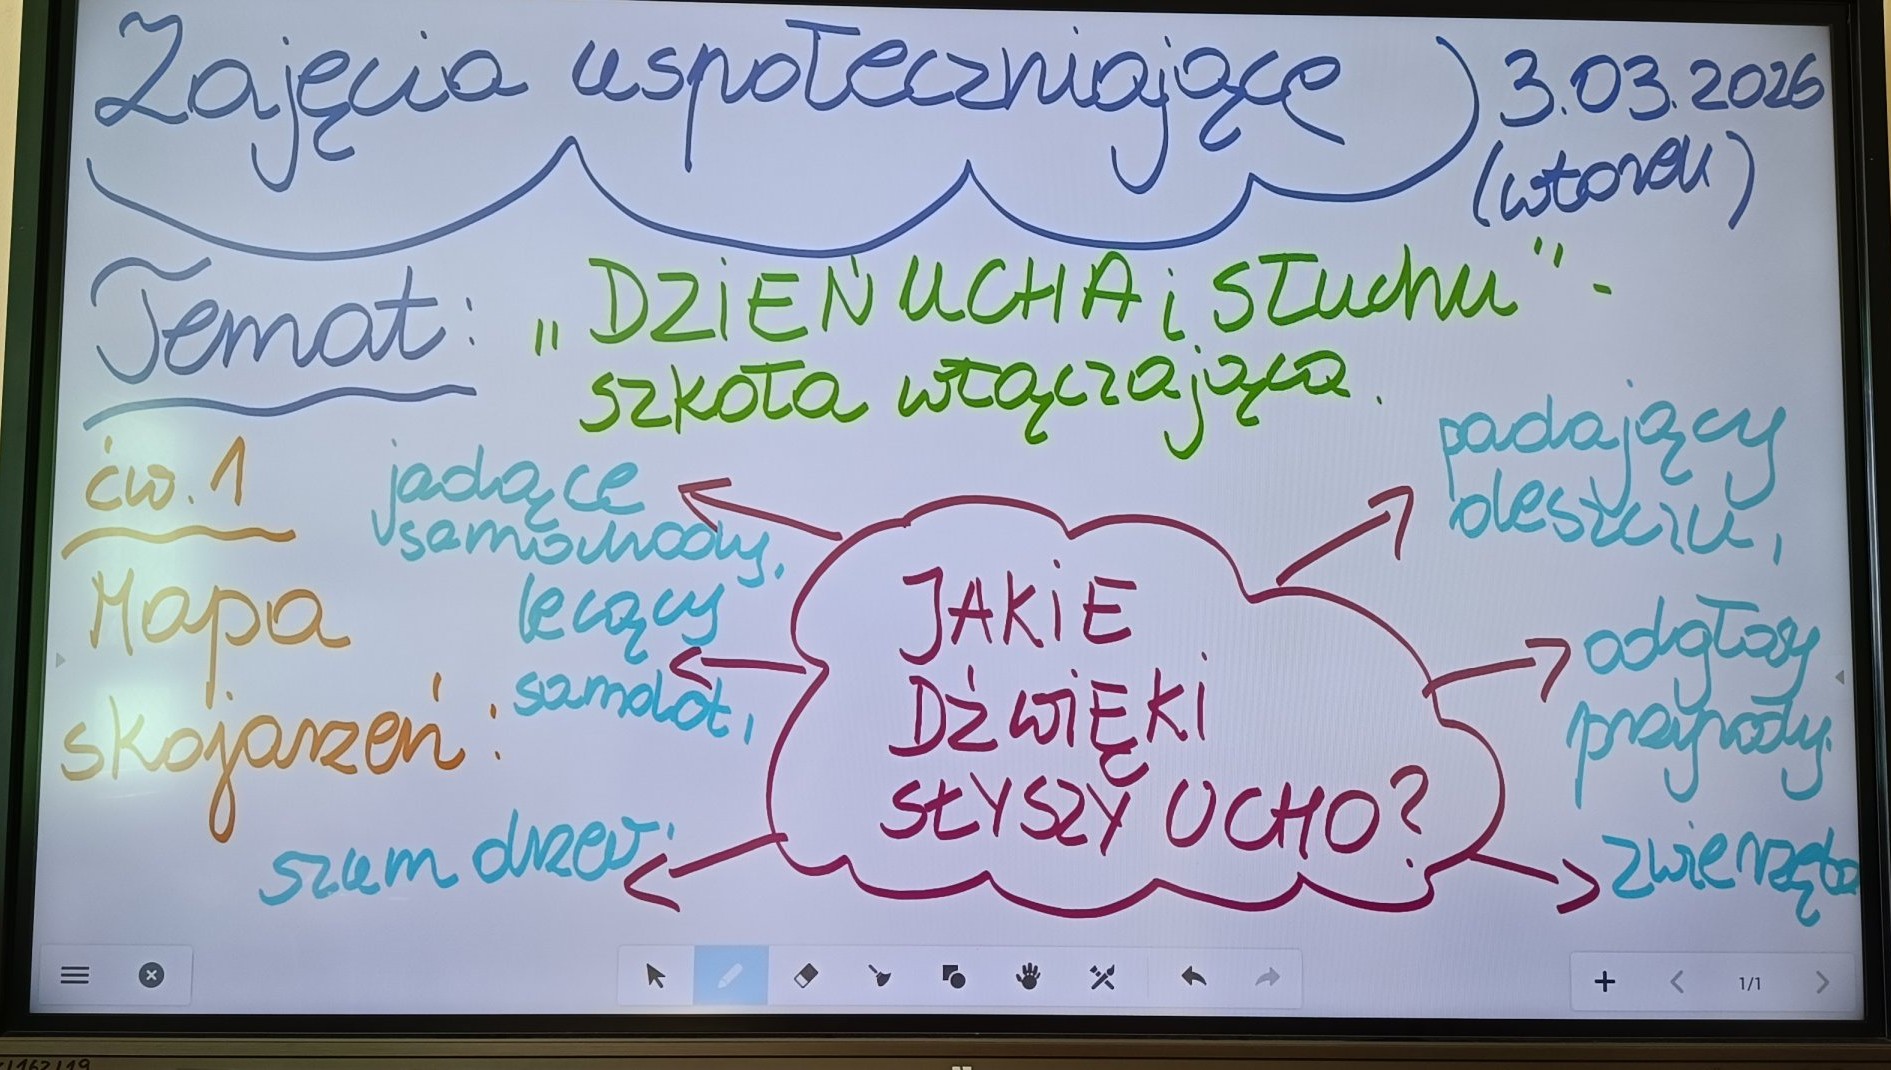 Zajęcia uspołeczniające
3.03.2026
(wtorek)
Temat: „DZIEŃ UCHA i słuchu” -
szkoła włączająca.
ćw. 1
Mapa
skojarzeń:
jadące
samochody,
lecący
samolot,
szum drzew.
JAKIE
DŹWIĘKI
SŁYSZY UCHO?
padający
deszczu,
odgłosy
przyrody.
zwierzęta
1/1